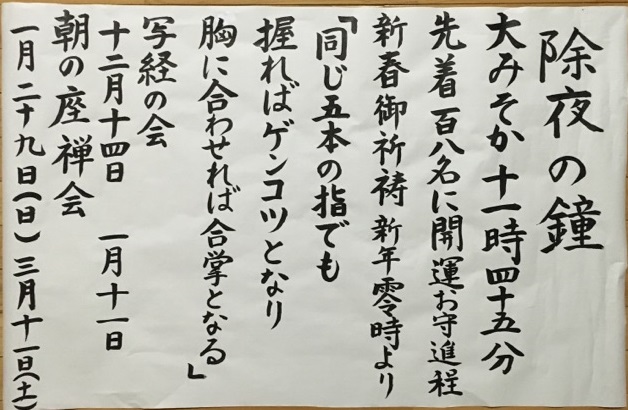 除夜の鐘
大みそか 十一時四十五分
先着百八名に開運お守進程
新春御祈祷 新年零時より
「同じ五本の指でも
握ればゲンコツとなり
胸に合わせれば合掌となる」
写経の会
十二月十四日 一月十一日
朝の座禅会
一月二十九日(日) 三月十一日(土)